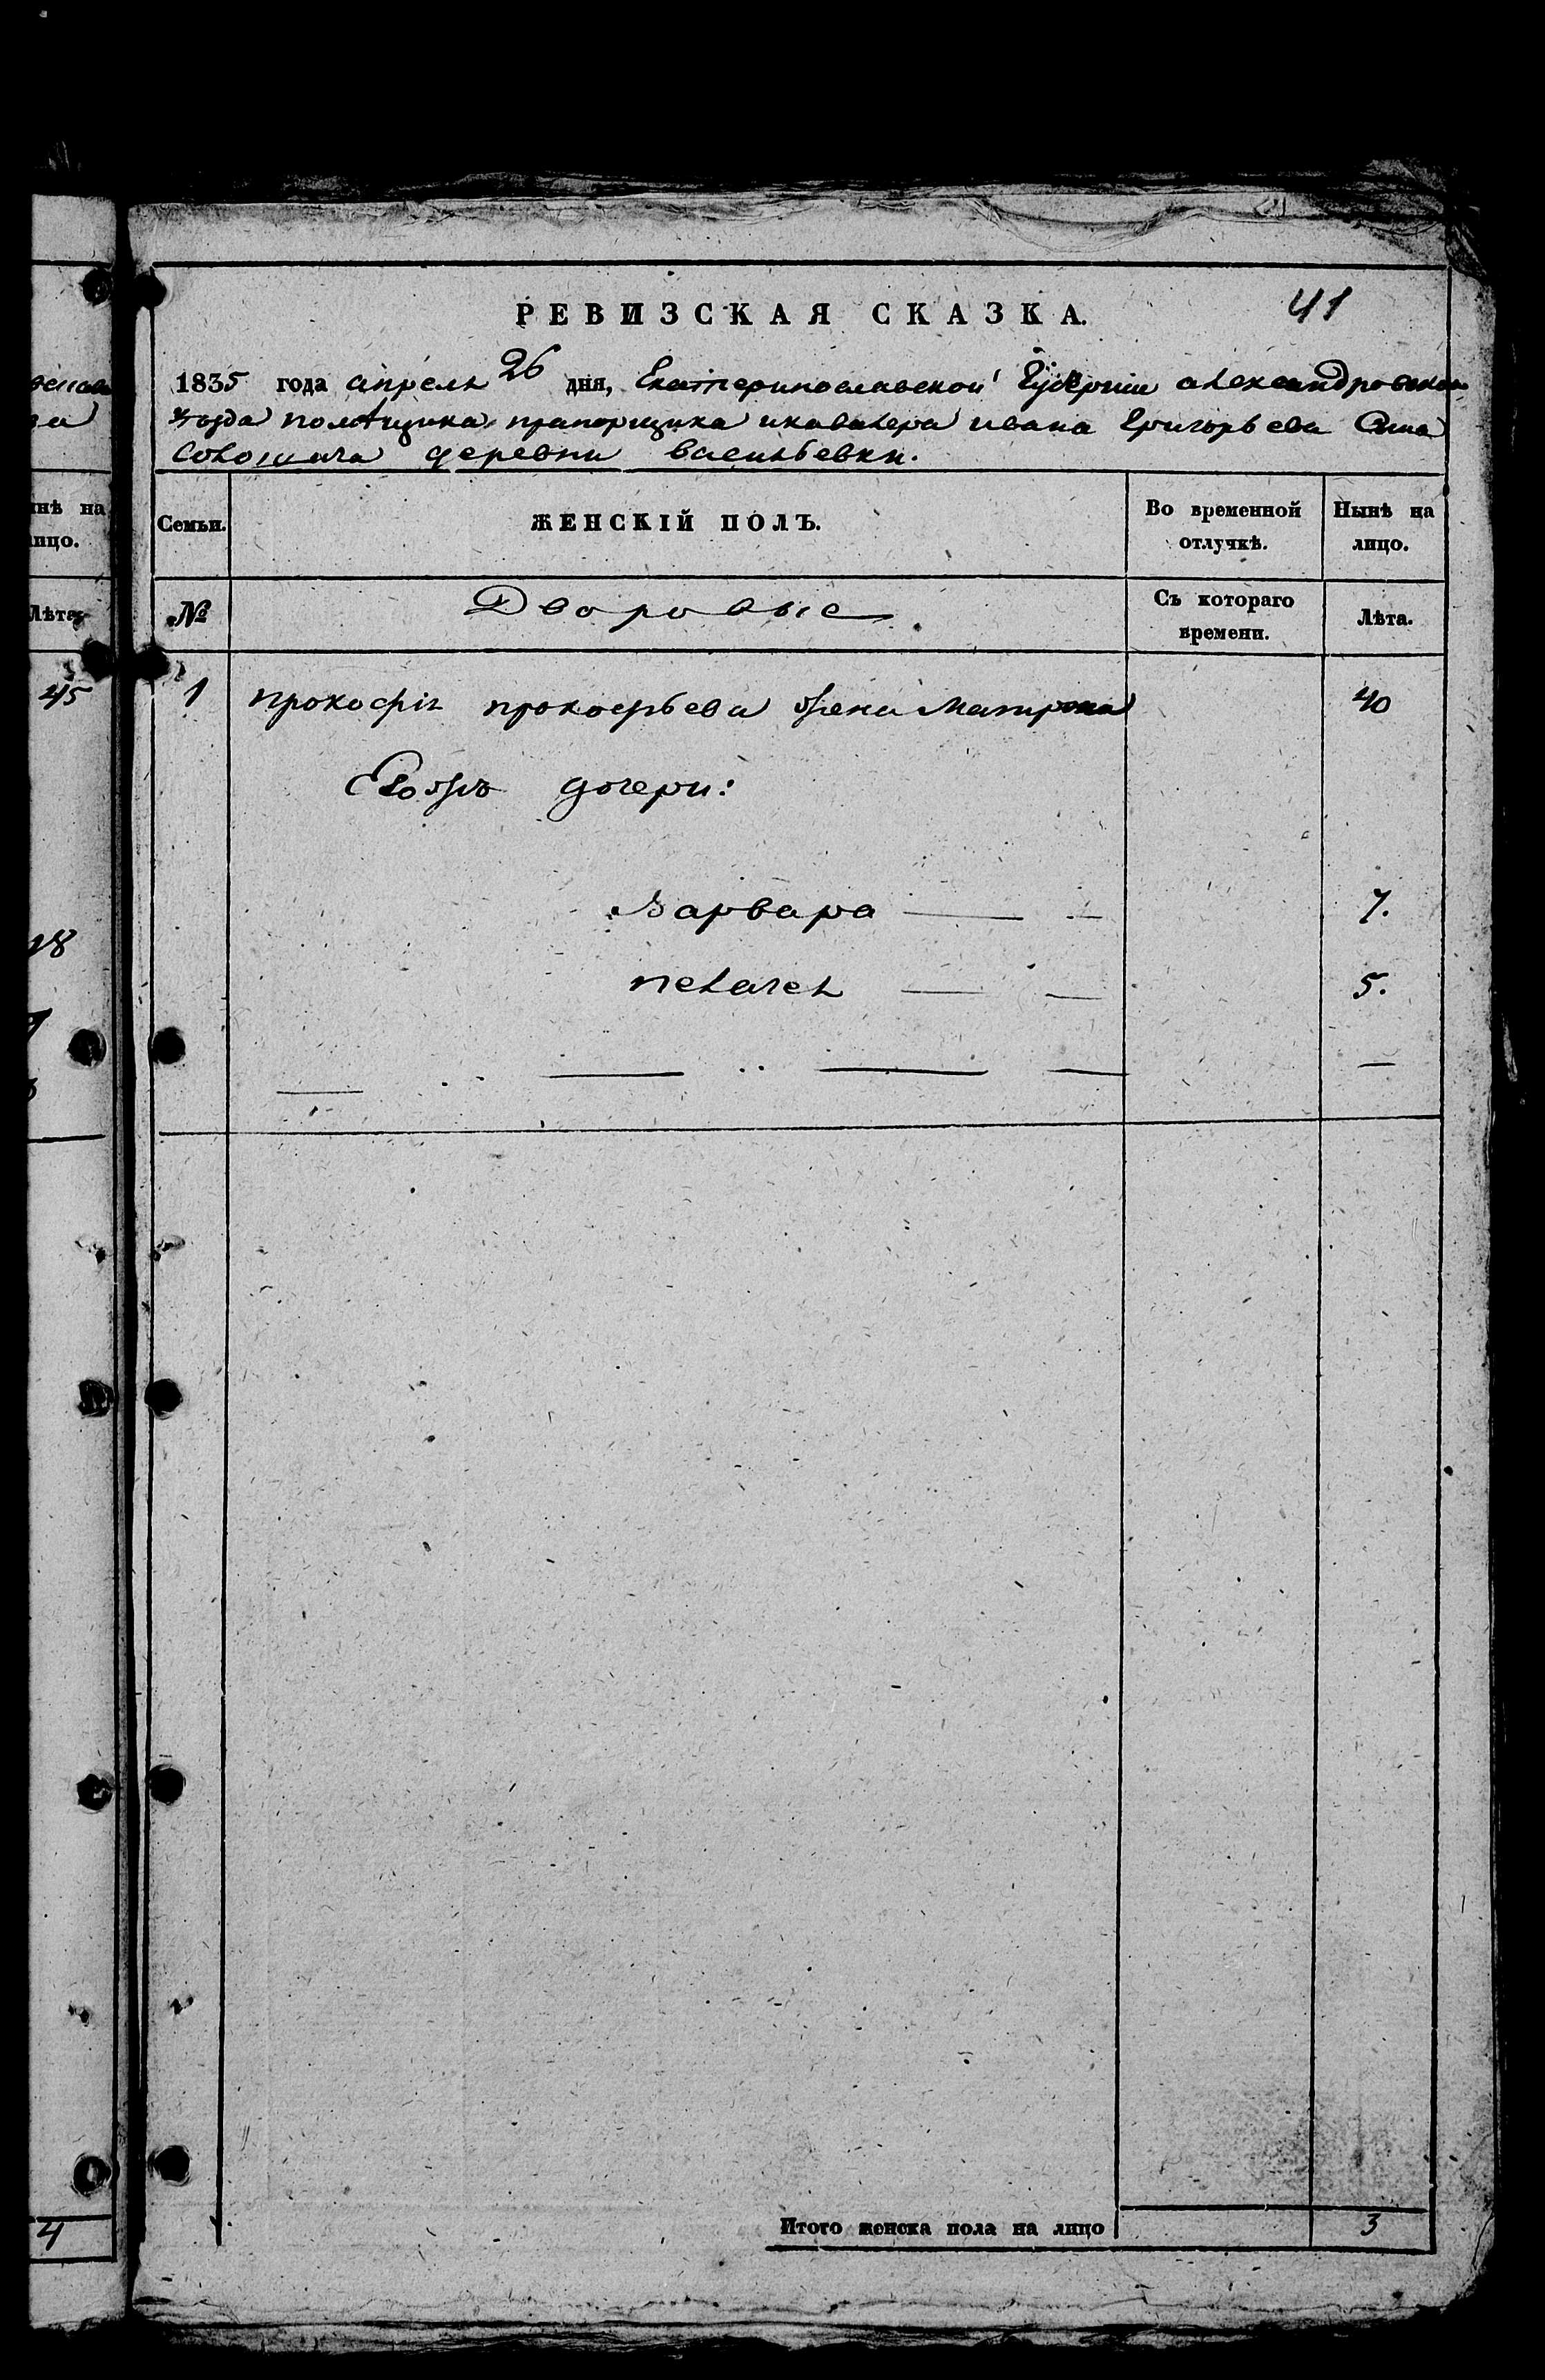 41
РЕВИЗСКАЯ СКАЗКА.
1835 года апреля 26 дня, Екатеринославской Губернии александровского
уезда помещика прапорщика икавалера ивана Григорьева Сына
деревни васильевки.
Семьи. ЖЕНСКІЙ ПОЛЪ. Во временной отлучкѣ. Нынѣ на лицо.
№ Дворовые Съ котораго времени. Лѣта.
1 прокофiя прокофьева жена Матрона 40
Егожъ дочери:
Варвара 7.
пелагея 5.
Итого женска пола на лицо 3
нѣ на
ицо.
Лѣта
45
18
4